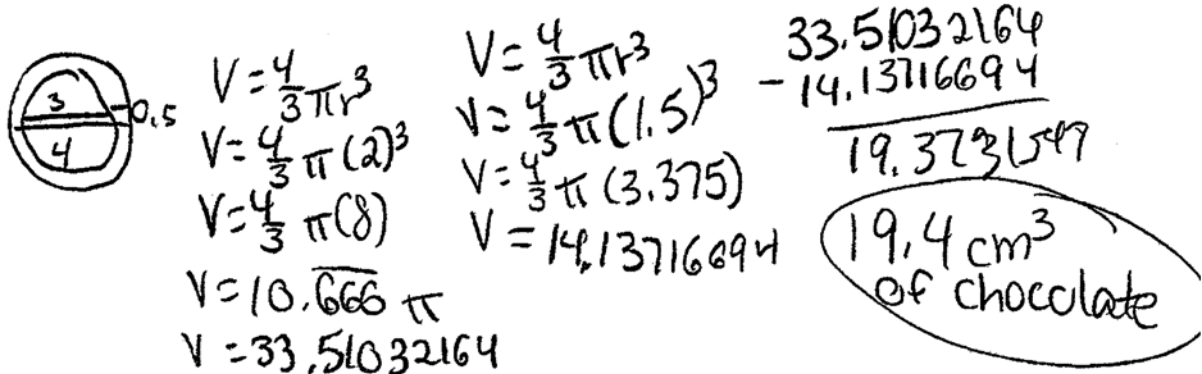 3
4
0.5
V = 4/3 πr³
V = 4/3 π (2)³
V = 4/3 π(8)
V = 10.666 π
V = 33.51032164
V = 4/3 πr³
V = 4/3 π (1.5)³
V = 4/3 π (3.375)
V = 14.13716694
33.51032164
- 14.13716694
19.3731547
19.4 cm³
of chocolate